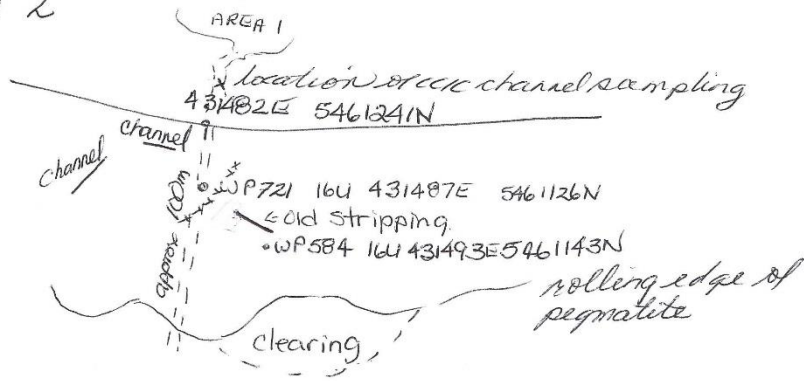 2
AREA 1
x location of channel sampling
431482E 5461241N
channel
channel
WP721 16U 431487E 5461126N
approx 100m
← old stripping
WP584 16U 431493E 5461143N
rolling edge of
pegmatite
clearing